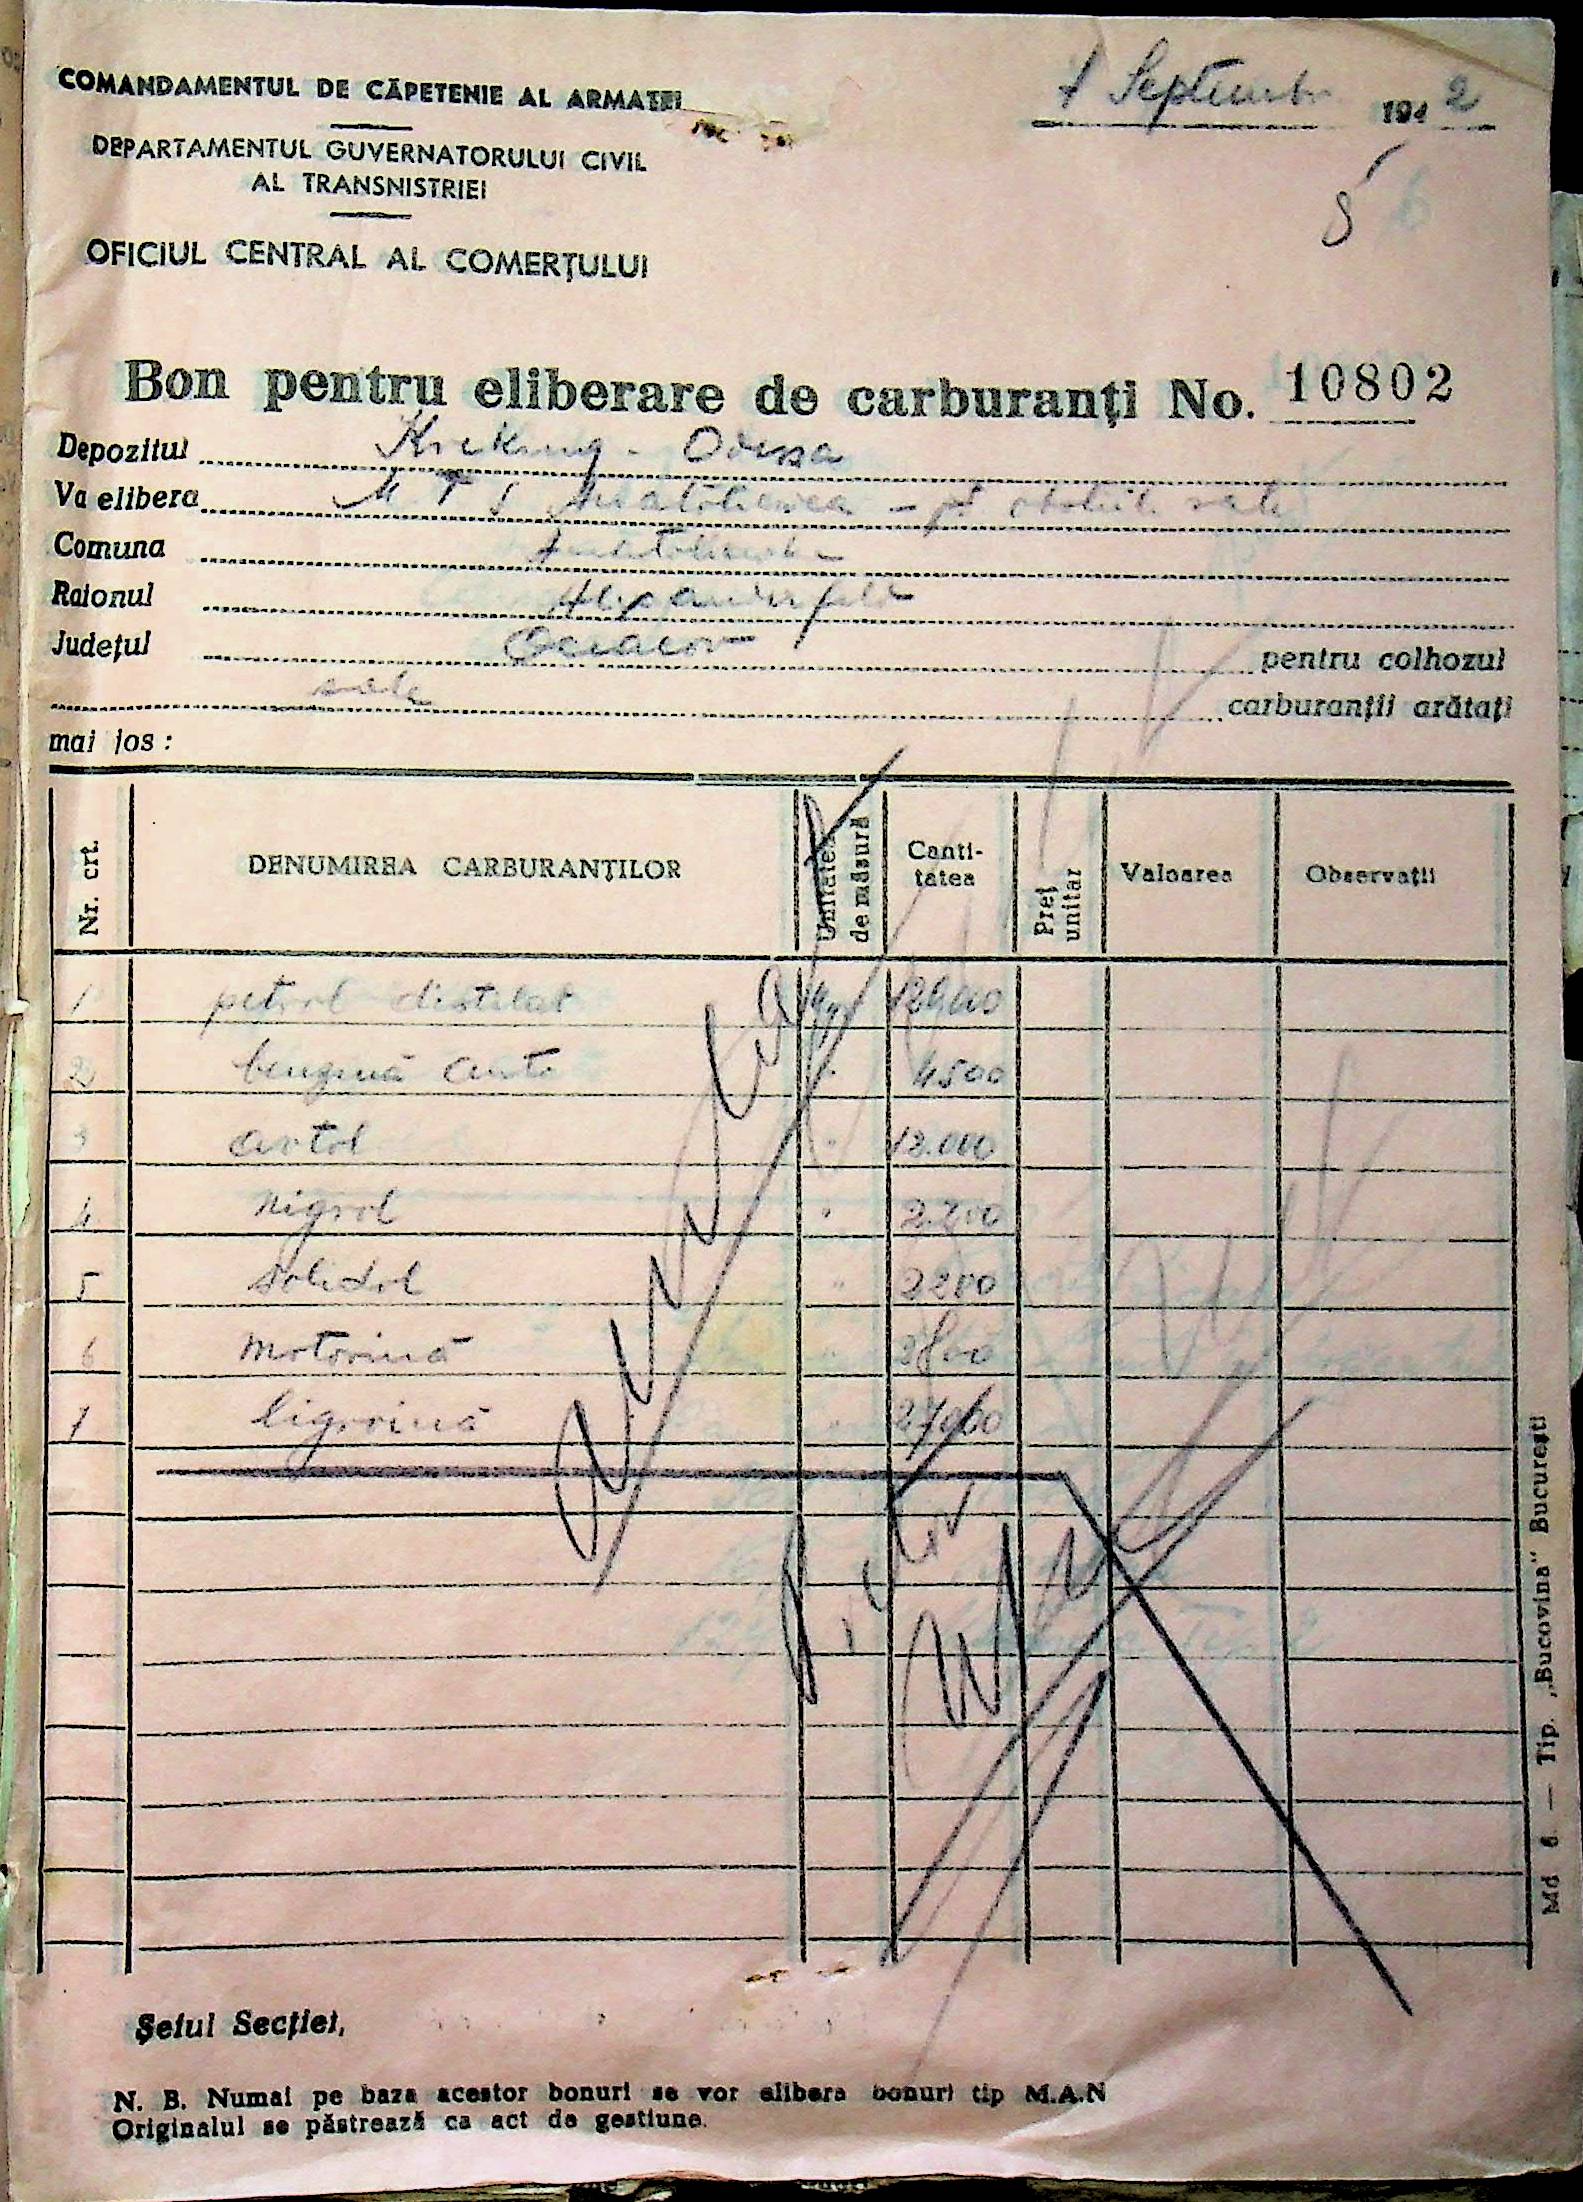 COMANDAMENTUL DE CĂPETENIE AL ARMATEI
Septembrie 1942
DEPARTAMENTUL GUVERNATORULUI CIVIL
AL TRANSNISTRIEI
OFICIUL CENTRAL AL COMERȚULUI
Bon pentru eliberare de carburanți No. 10802
Depozitul Kreking - Odessa
Va elibera M T S
Comuna
Raionul Alexanderfeld
Județul Oceacov pentru colhozul
sale carburanții arătați
mai jos:
Nr. crt. DENUMIREA CARBURANȚILOR Unitatea de măsură Cantitatea Preț unitar Valoarea Observații
1 petrol distilat Kgr
2 benzină auto " 4500
3 avtol " 12.000
4 nigrol " 2.200
5 solidol " 2200
6 motorină "
7 ligroină " 27000
Anulat
Șeful Secției,
N. B. Numai pe baza acestor bonuri se vor elibera bonuri tip M.A.N
Originalul se păstrează ca act de gestiune.
Md 6. — Tip. „Bucovina" București